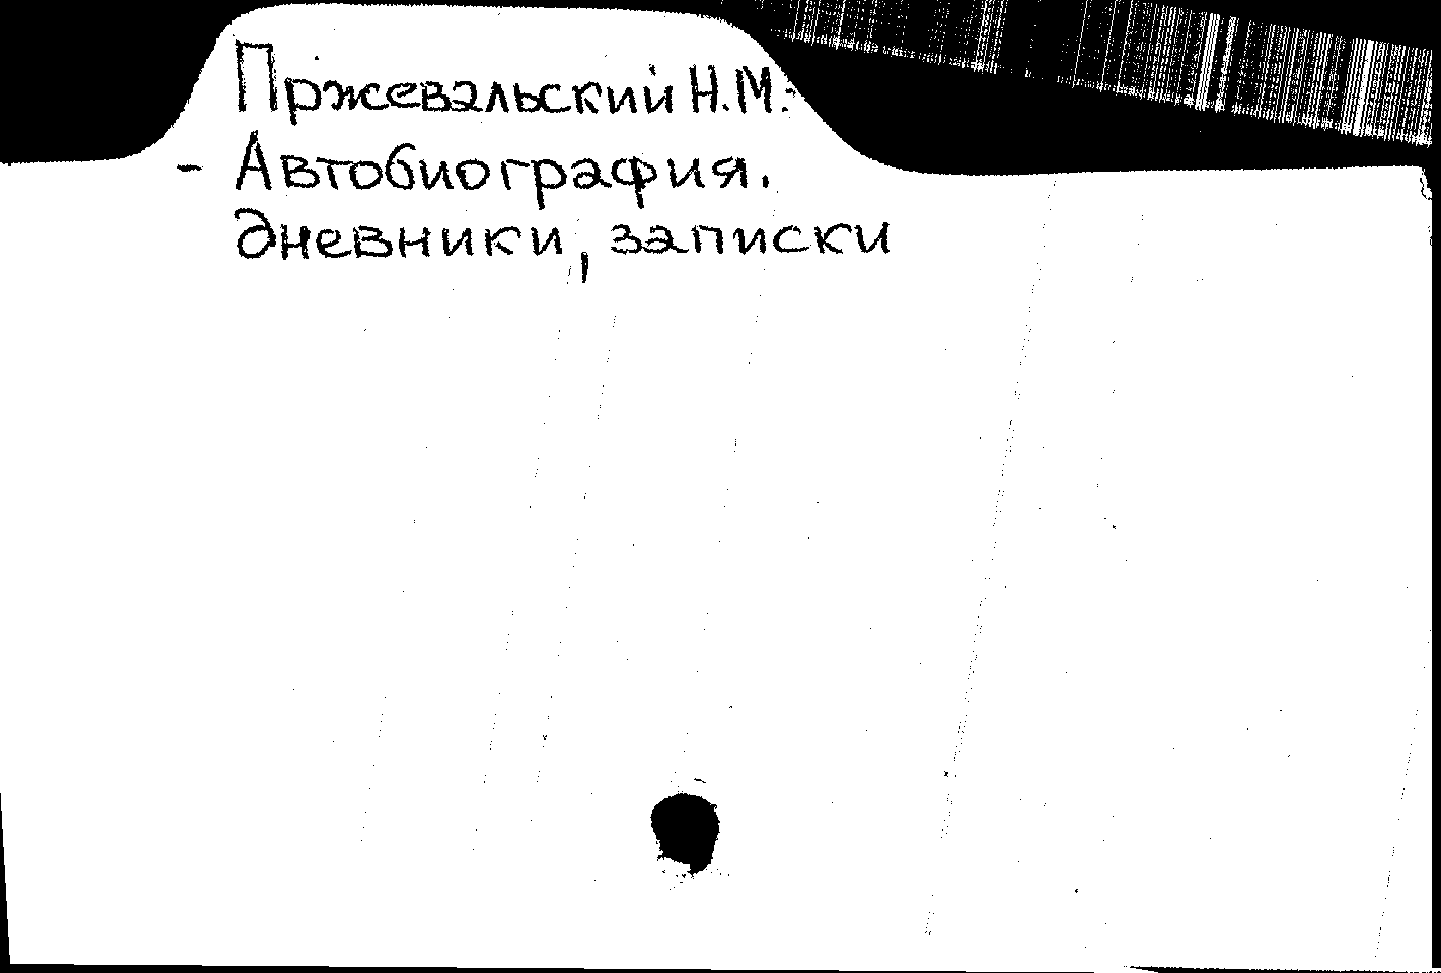 Пржевальский Н.М.
- Автобиография.
дневники, записки